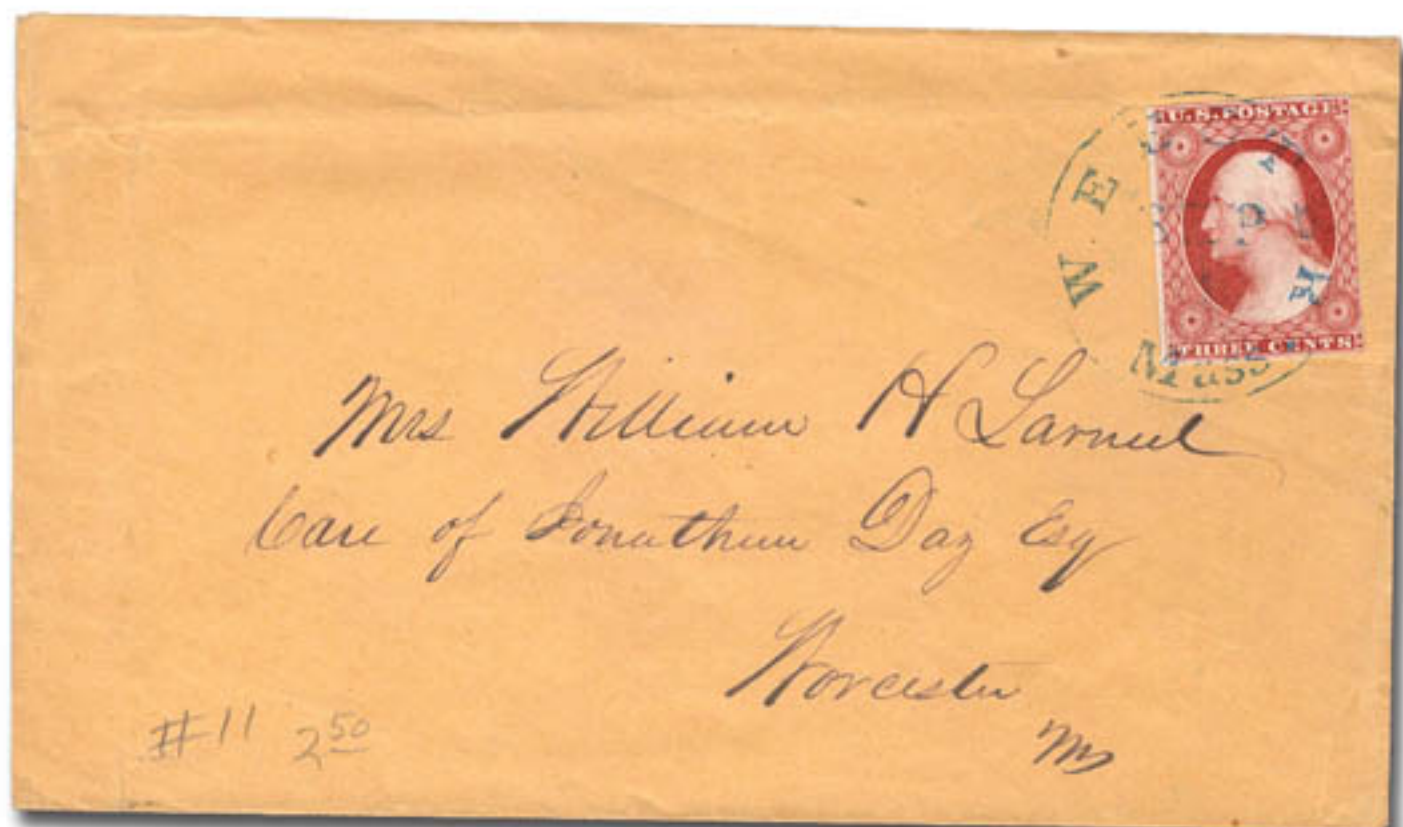 U.S. POSTAGE
THREE CENTS
SEP
Mass
Mrs William H Larned
Care of Jonathan Day Esq
Worcester
Ms
#11 2 50